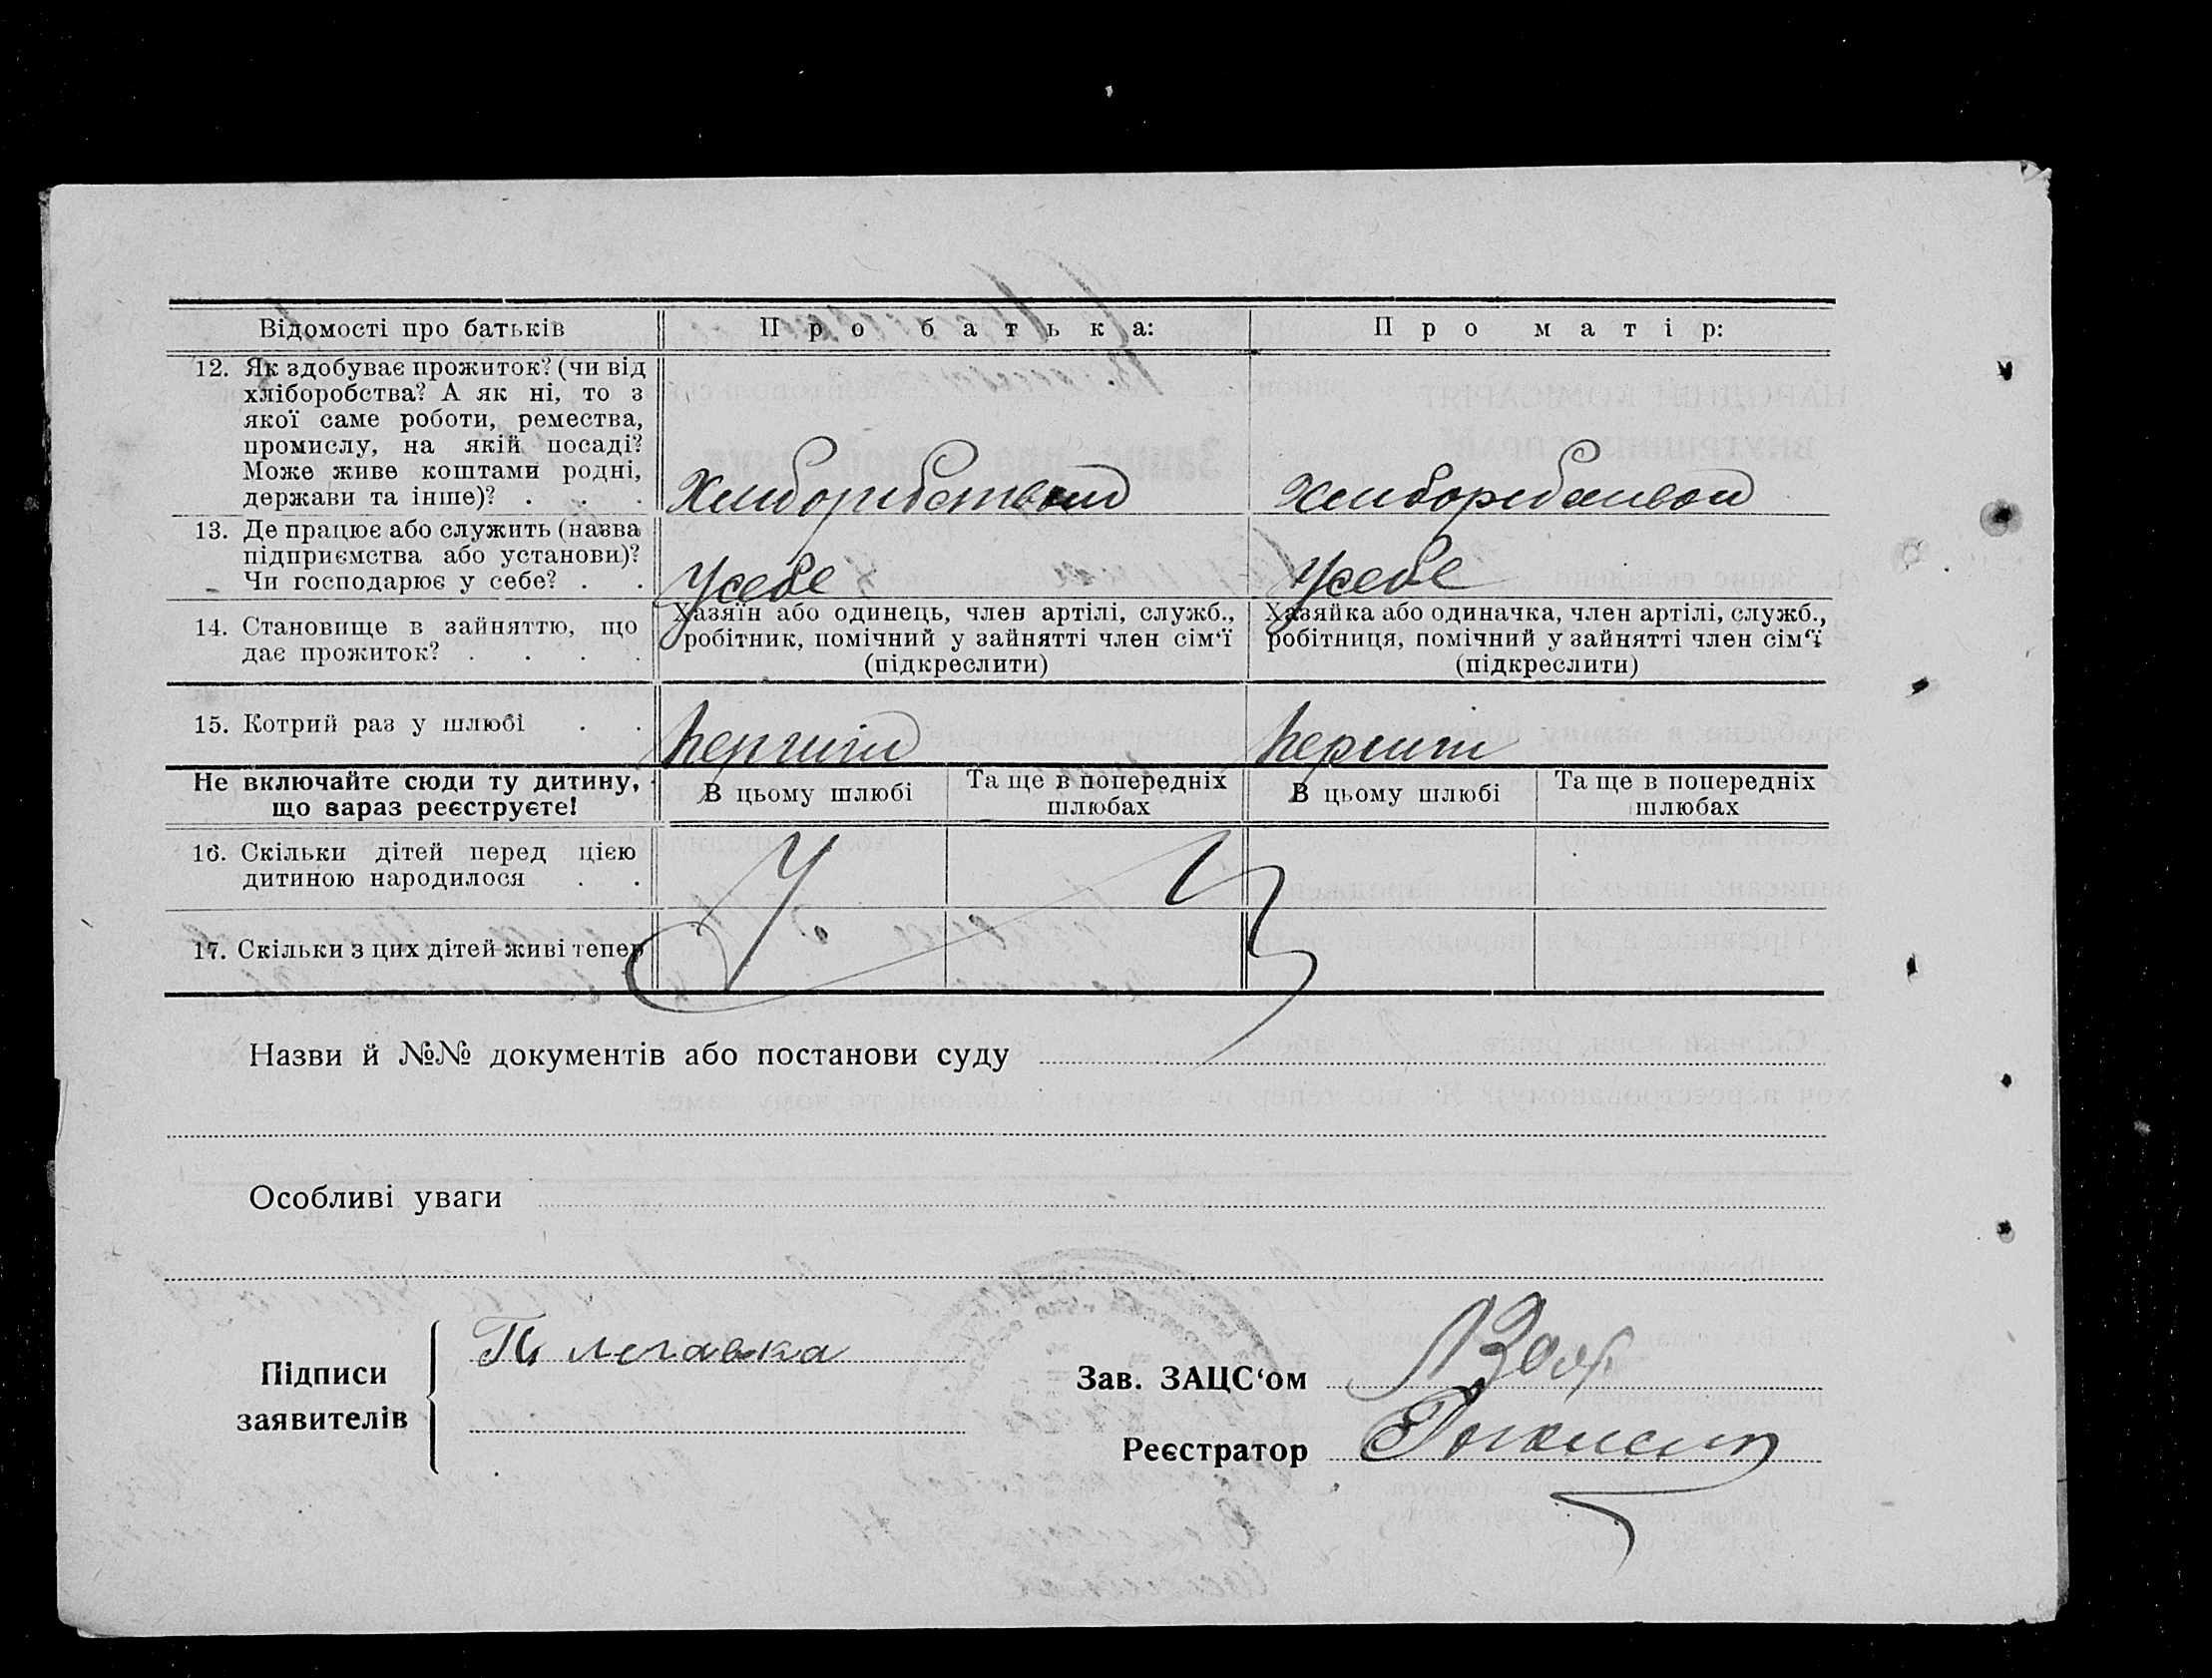 Відомості про батьків
Про батька:
Про матір:
12. Як здобуває прожиток? (чи від
хліборобства? А як ні, то з
якої саме роботи, ремества,
промислу, на якій посаді?
Може живе коштами родні,
держави та інше)? . . .
13. Де працює або служить (назва
підприємства або установи)?
Чи господарює у себе? . .
Усебе
Усебе
14. Становище в зайняттю, що
дає прожиток? . . . .
Хазяїн або одинець, член артілі, служб.,
робітник, помічний у зайнятті член сім‘ї
(підкреслити)
Хазяйка або одиначка, член артілі, служб.,
робітниця, помічний у зайнятті член сім‘ї
(підкреслити)
15. Котрий раз у шлюбі . .
Не включайте сюди ту дитину,
що зараз реєструєте!
В цьому шлюбі
Та ще в попередніх
шлюбах
В цьому шлюбі
Та ще в попередніх
шлюбах
16. Скільки дітей перед цією
дитиною народилося . .
17. Скільки з цих дітей живі тепер
Назви й №№ документів або постанови суду
Особливі уваги
Підписи
заявителів
Зав. ЗАЦС‘ом
Реєстратор